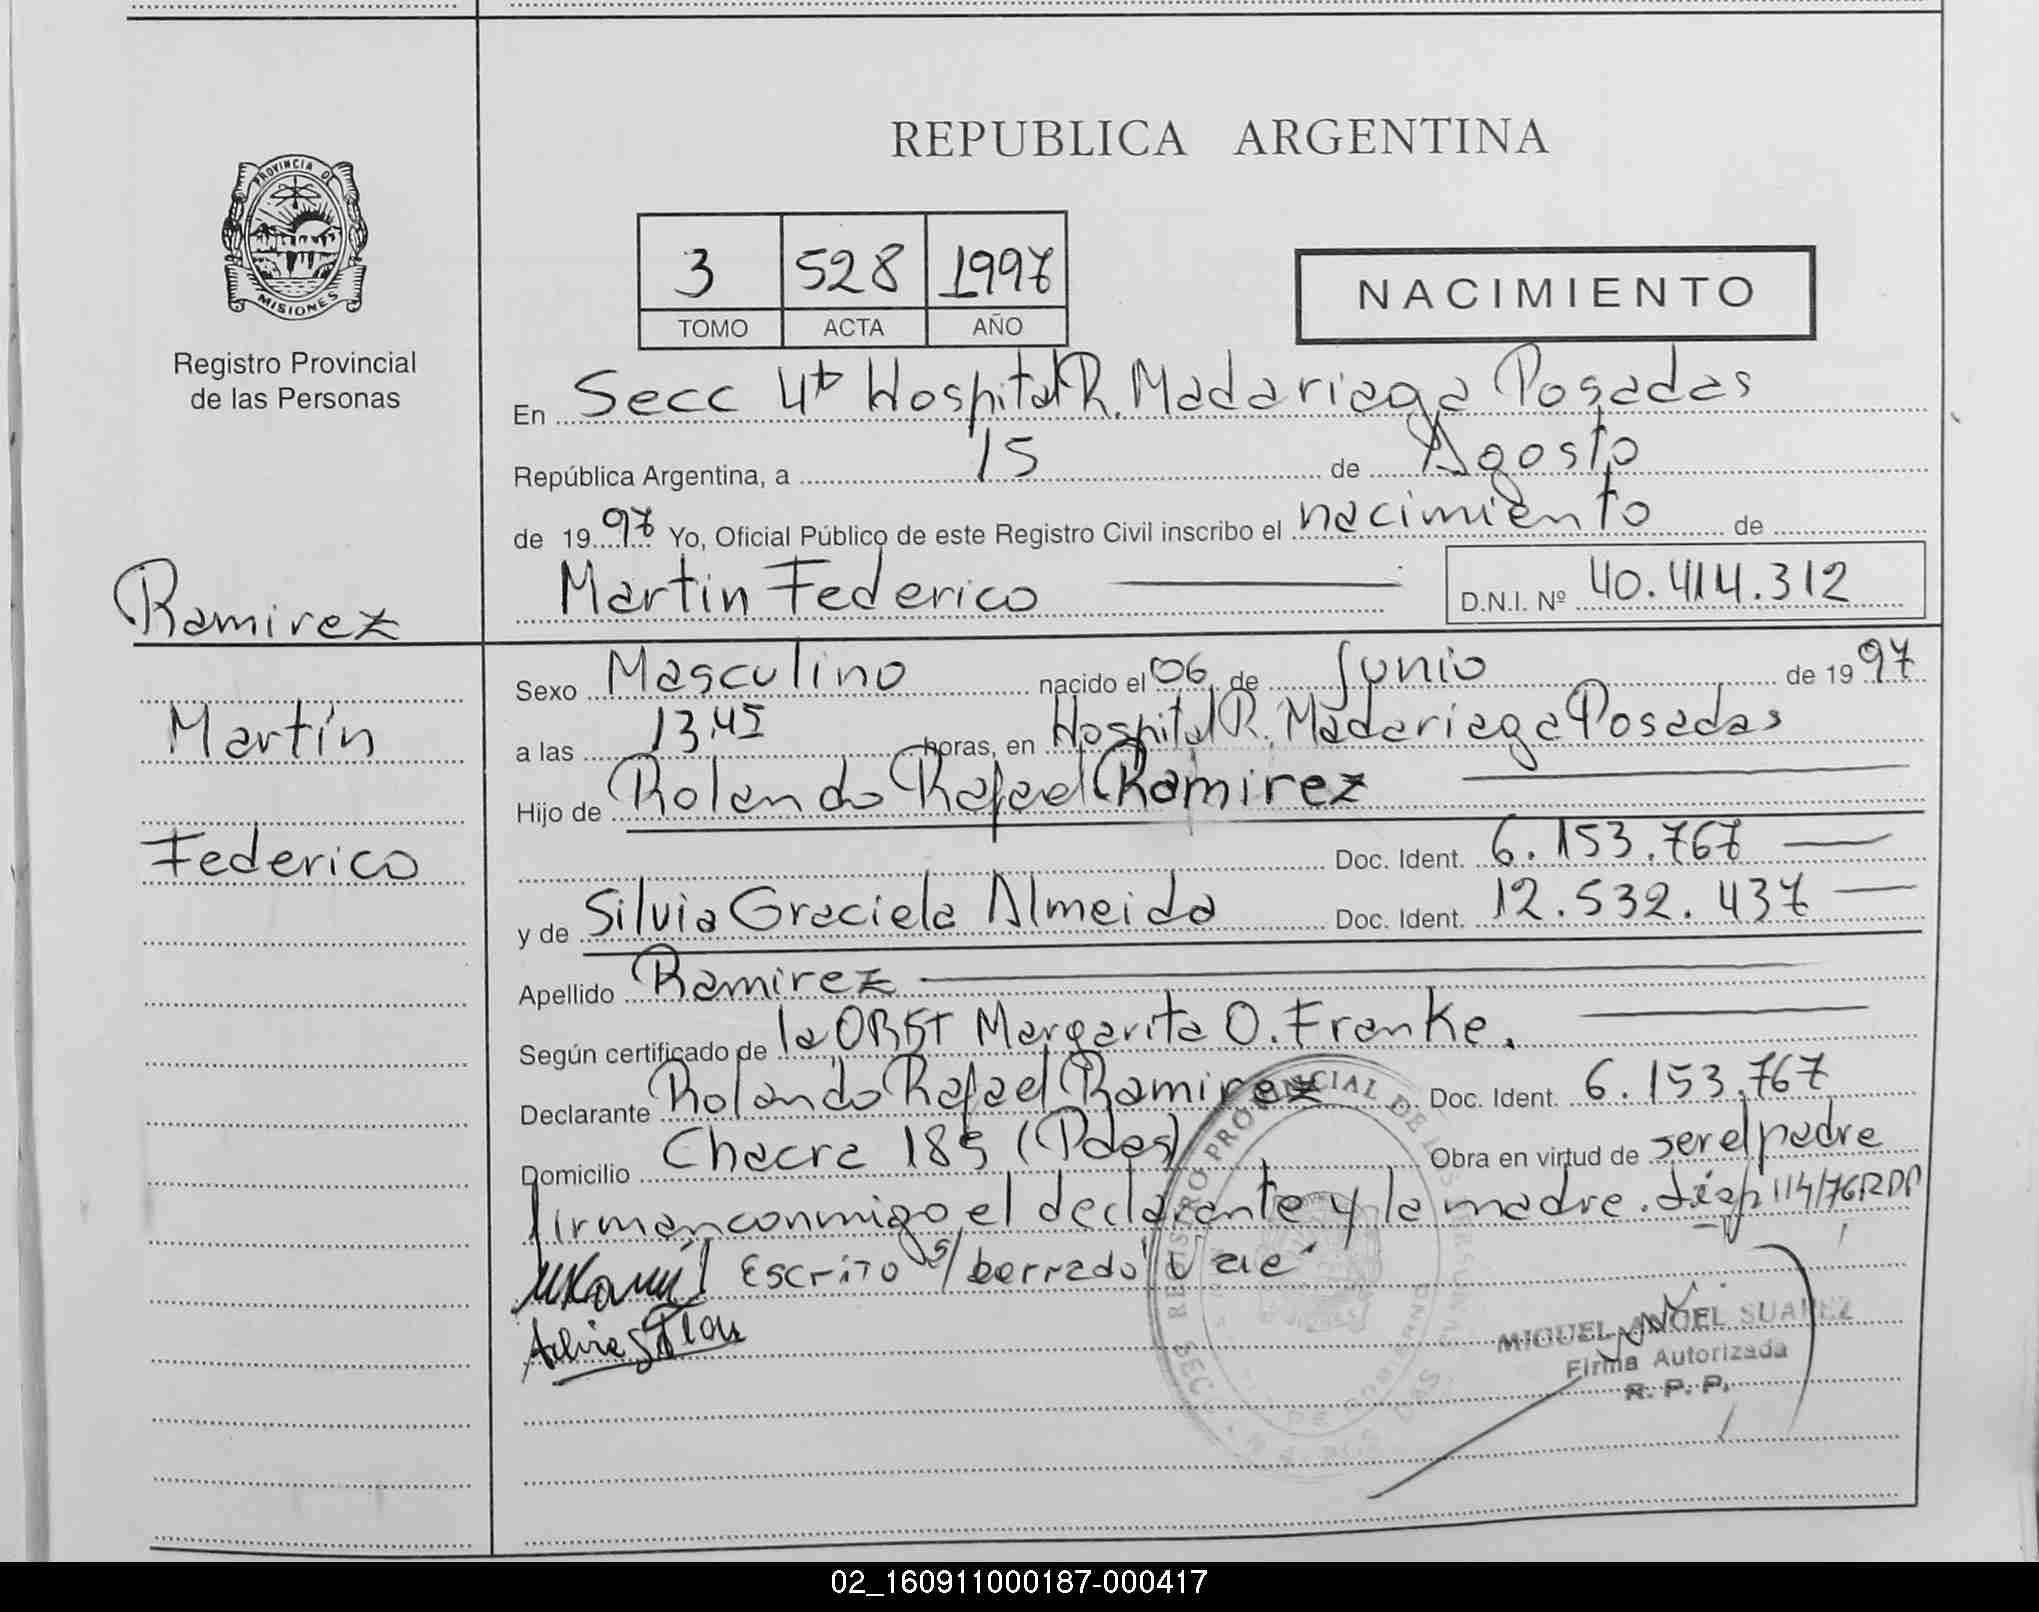 REPUBLICA ARGENTINA
PROVINCIA DE
MISIONES
Registro Provincial
de las Personas
3 528 1997
TOMO ACTA AÑO
NACIMIENTO
En Secc 4ta Hospital R. Madariaga Posadas
República Argentina, a 15 de Agosto
de 1997 Yo, Oficial Público de este Registro Civil inscribo el nacimiento de
Martin Federico D.N.I. Nº 40.414.312
Ramirez
Martín
Federico
Sexo Masculino nacido el 06 de Junio de 1997
a las 13,45 horas, en Hospital R. Madariaga Posadas
Hijo de Rolando Rafael Ramirez
Doc. Ident. 6.153.767
y de Silvia Graciela Almeida Doc. Ident. 12.532.437
Apellido Ramirez
Según certificado de la OBST Margarita O. Franke.
Declarante Rolando Rafael Ramirez Doc. Ident. 6.153.767
Domicilio Chacra 185 (Pdas) Obra en virtud de ser el padre
firman conmigo el declarante y la madre. disp 114/76 RDP
Escrito s/ borrado
REGISTRO PROVINCIAL DE LAS PERSONAS
MIGUEL ANGEL SUAREZ
Firma Autorizada
R. P. P.
02_160911000187-000417